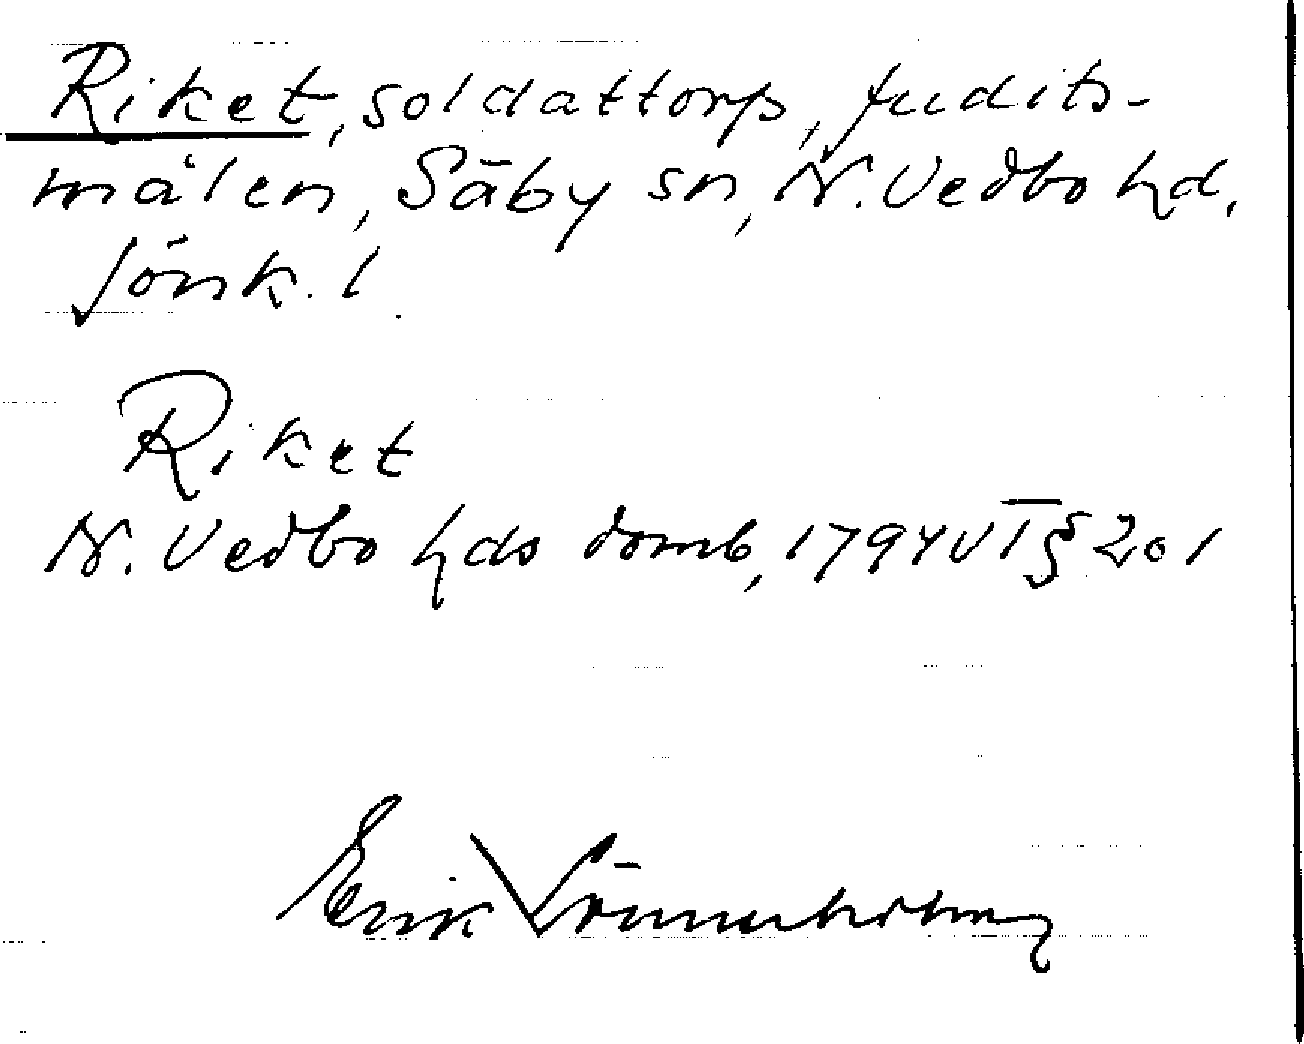 Riket, soldattorp, Judits-
målen, Säby sn, N. Vedbo hd.
Jönk. l.
Riket
N. Vedbo hds domb, 1794 VI § 201
Erik Lönnerholm